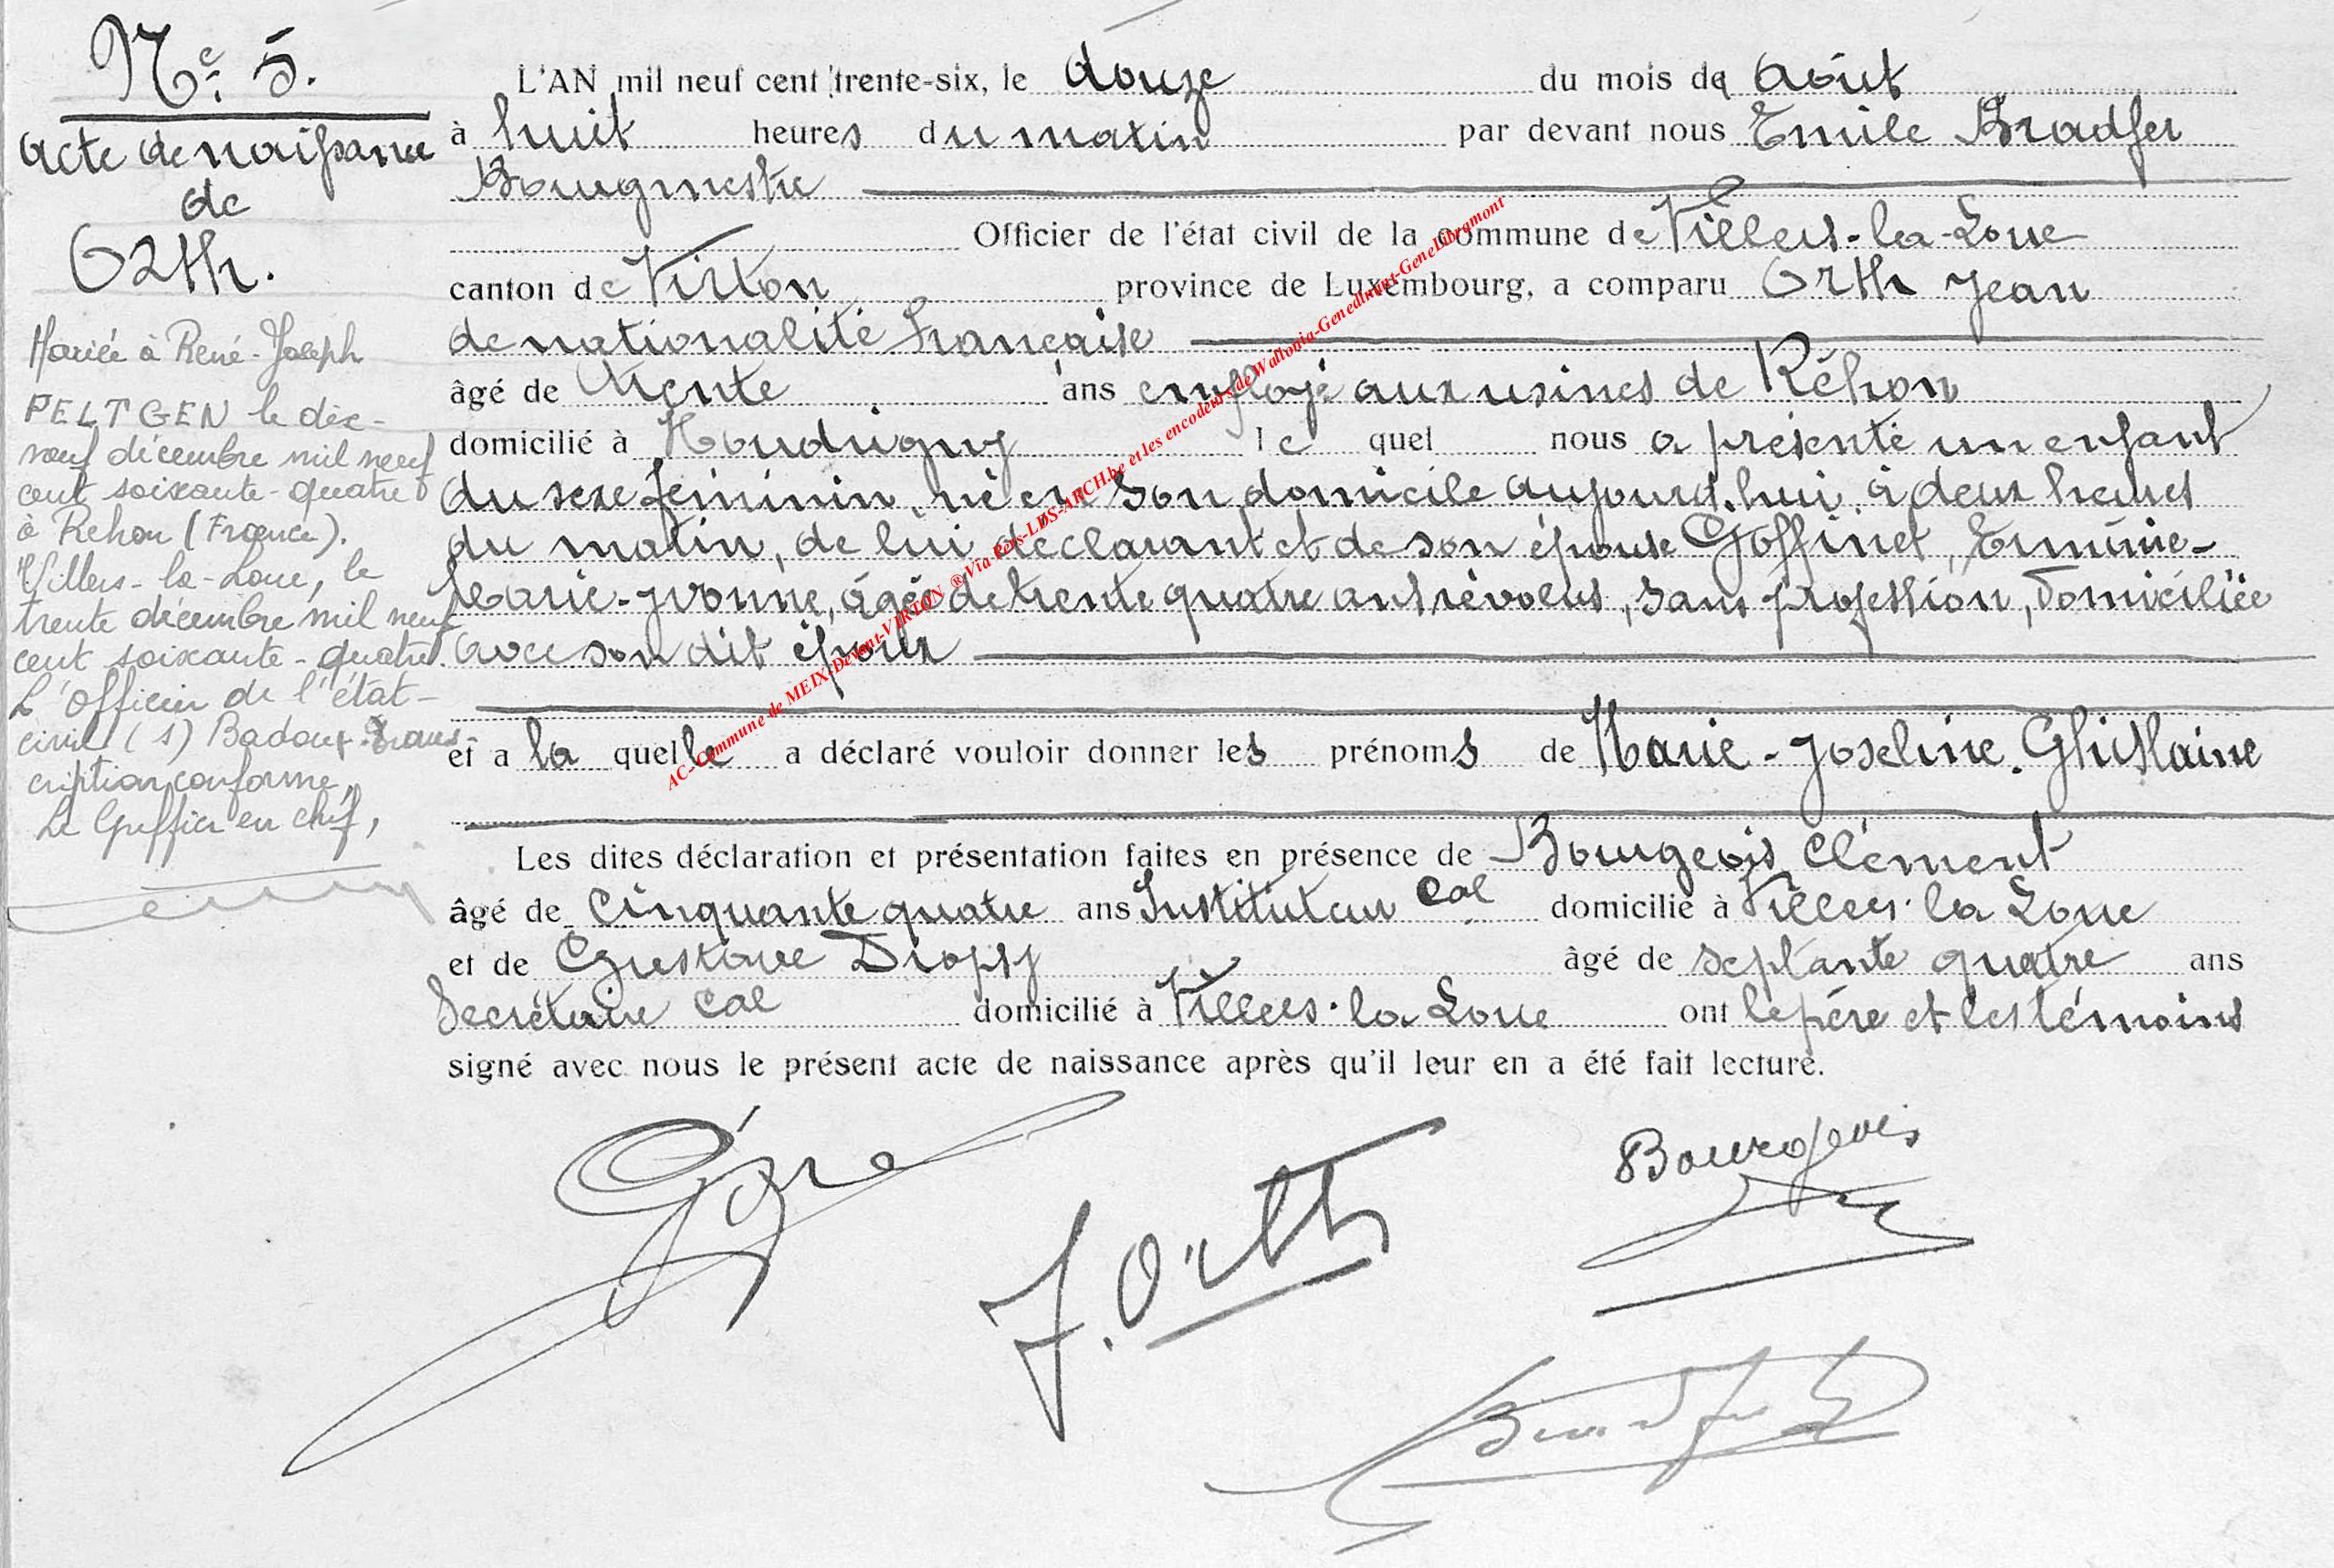 No 5.
Acte de naissance
de
Orth.
Mariée à René-Joseph
PELTGEN le dix-
neuf décembre mil neuf
cent soixante-quatre
à Rehon (France).
Villers-la-Loue, le
trente décembre mil neuf
cent soixante-quatre.
L'Officier de l'état-
civil (s) Badoux. Trans-
cription conforme,
Le Greffier en chef,
L'AN mil neuf cent trente-six, le douze du mois de Août
à huit heures du matin par devant nous Emile Bradfer
Bourgmestre
Officier de l'état civil de la commune de Villers-la-Loue
canton de Virton province de Luxembourg, a comparu Orth Jean
de nationalité française
âgé de trente ans employé aux usines de Réhon
domicilié à Houdrigny le quel nous a présenté un enfant
du sexe féminin, né en son domicile aujourd'hui, à deux heures
du matin, de lui déclarant et de son épouse Goffinet, Erminie-
Marie-Yvonne, âgée de trente quatre ans révolus, sans profession, domiciliée
avec son dit époux
et a la quelle a déclaré vouloir donner les prénoms de Marie-Joseline-Ghislaine
Les dites déclaration et présentation faites en présence de Bourgeois Clément
âgé de cinquante quatre ans Instituteur Cal domicilié à Villers-la Loue
et de Gustave Diopsy âgé de septante quatre ans
Secrétaire Cal domicilié à Villers-la Loue ont le père et les témoins
signé avec nous le présent acte de naissance après qu'il leur en a été fait lecture.
J. Orth
Bourgeois
Bradfer
AC-Commune de MEIX-Devant-VIRTON ® Via Pers-LDS-ARCH.be et les encodeurs de Wallonia-Genedinant-GeneLibramont